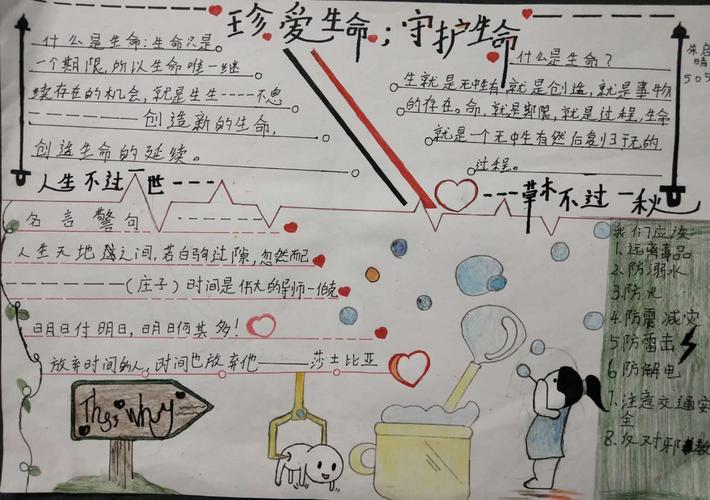 珍爱生命；守护生命
朱启晴
505
什么是生命：生命只是
一个期限，所以生命唯一继
续存在的机会，就是生生----不息
--------创造新的生命，
创造生命的延续。
什么是生命？
生就是无中生有，就是创造，就是事物
的存在。命，就是期限，就是过程，生命
就是一个无中生有然后复归于无的
过程。
人生不过一世----
---草木不过一秋
名言警句--------
人生天地之间，若白驹过隙，忽然而已
--------（庄子）时间是伟大的导师—伯克
明日付明日，明日何其多！
放弃时间的人，时间也放弃他----莎士比亚
我们应该：
1、远离毒品
2、防溺水
3、防火
4、防震减灾
5、防雷击
6、防触电
7、注意交通安
全
8、反对邪教
Thgs Why